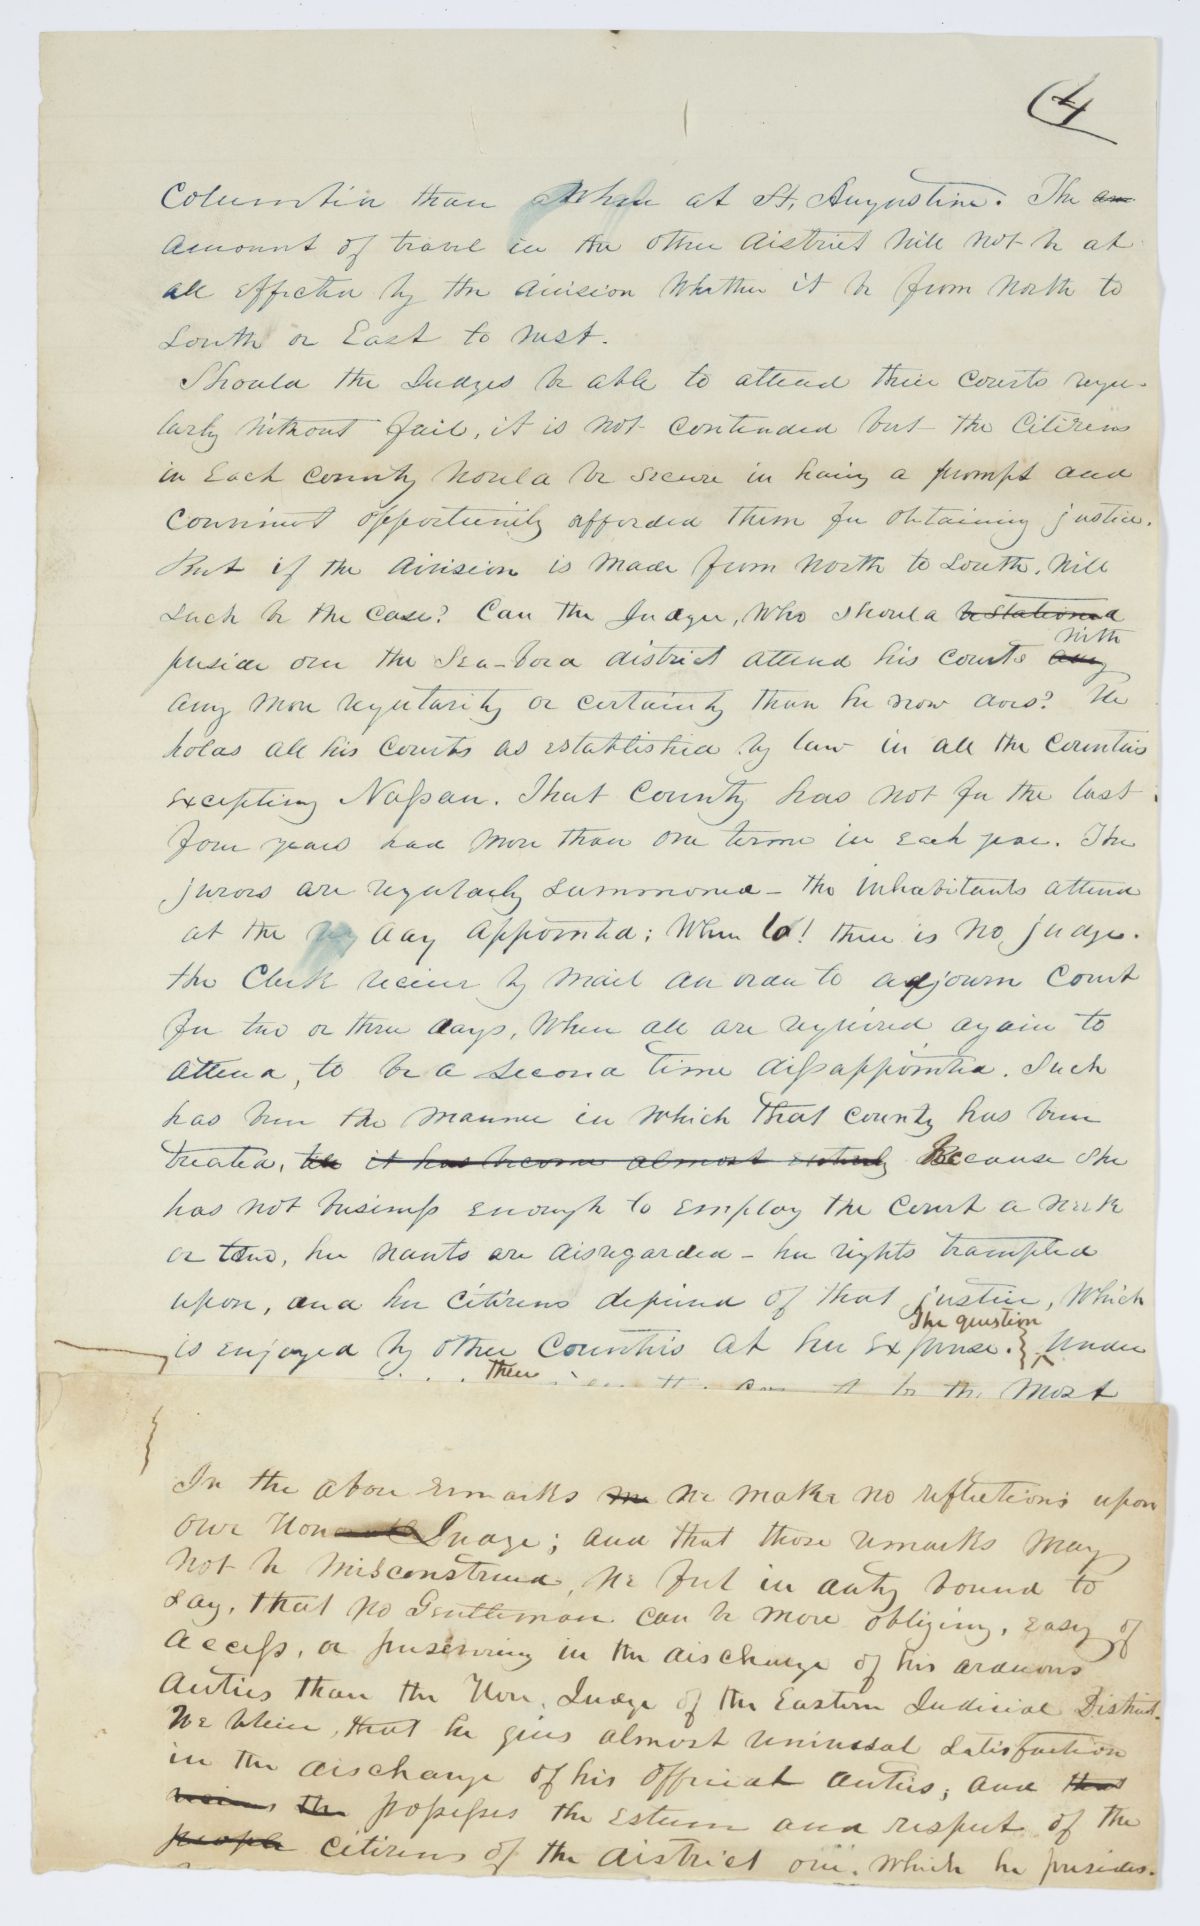 (4
Columbia than when at St. Augustine. The am
amount of travel in the other district will not be at
all effected by the division whether it be from North to
South or East to west.
Should the Judges be able to attend their courts regu-
larly without fail, it is not contended but the Citizens
in Each county would be secure in having a prompt and
convenient opportunity afforded them for obtaining justice.
But if the division is made from North to South, will
such be the case? Can the Judge, who should be stationed
with
preside over the Sea-bord district attend his courts any
any more regularity or certainty than he now does? He
holds all his courts as established by law in all the counties
excepting Nassau. That county has not for the last
four years had more than one term in each year. The
jurors are regularly summoned - the inhabitants attend
at the day appointed; When lo! there is no judge.
the Clerk recieves by mail an order to adjourn Court
for two or three days, when all are required again to
attend, to be a second time dissappointed. Such
has been the manner in which that county has been
treated, it has become almost entirely Because she
has not business enough to employ the court a week
or two, her wants are disregarded - her rights trampled
upon, and her citizens deprived of that justice, which
The question
is enjoyed by other Counties at her expense. } ^ Under
then
the most
{
In the above remarks we make no reflections upon
our Hon Judge; and that those remarks may
not be misconstrued, we feel in duty bound to
say, that no Gentleman can be more obliging, easy of
access, or persevering in the discharge of his arduous
duties than the Hon. Judge of the Eastern Judicial District.
We believe, that he gives almost universal satisfaction
in the discharge of his official duties; and that
the possesses the esteem and respect of the
people citizens of the district over which he presides.